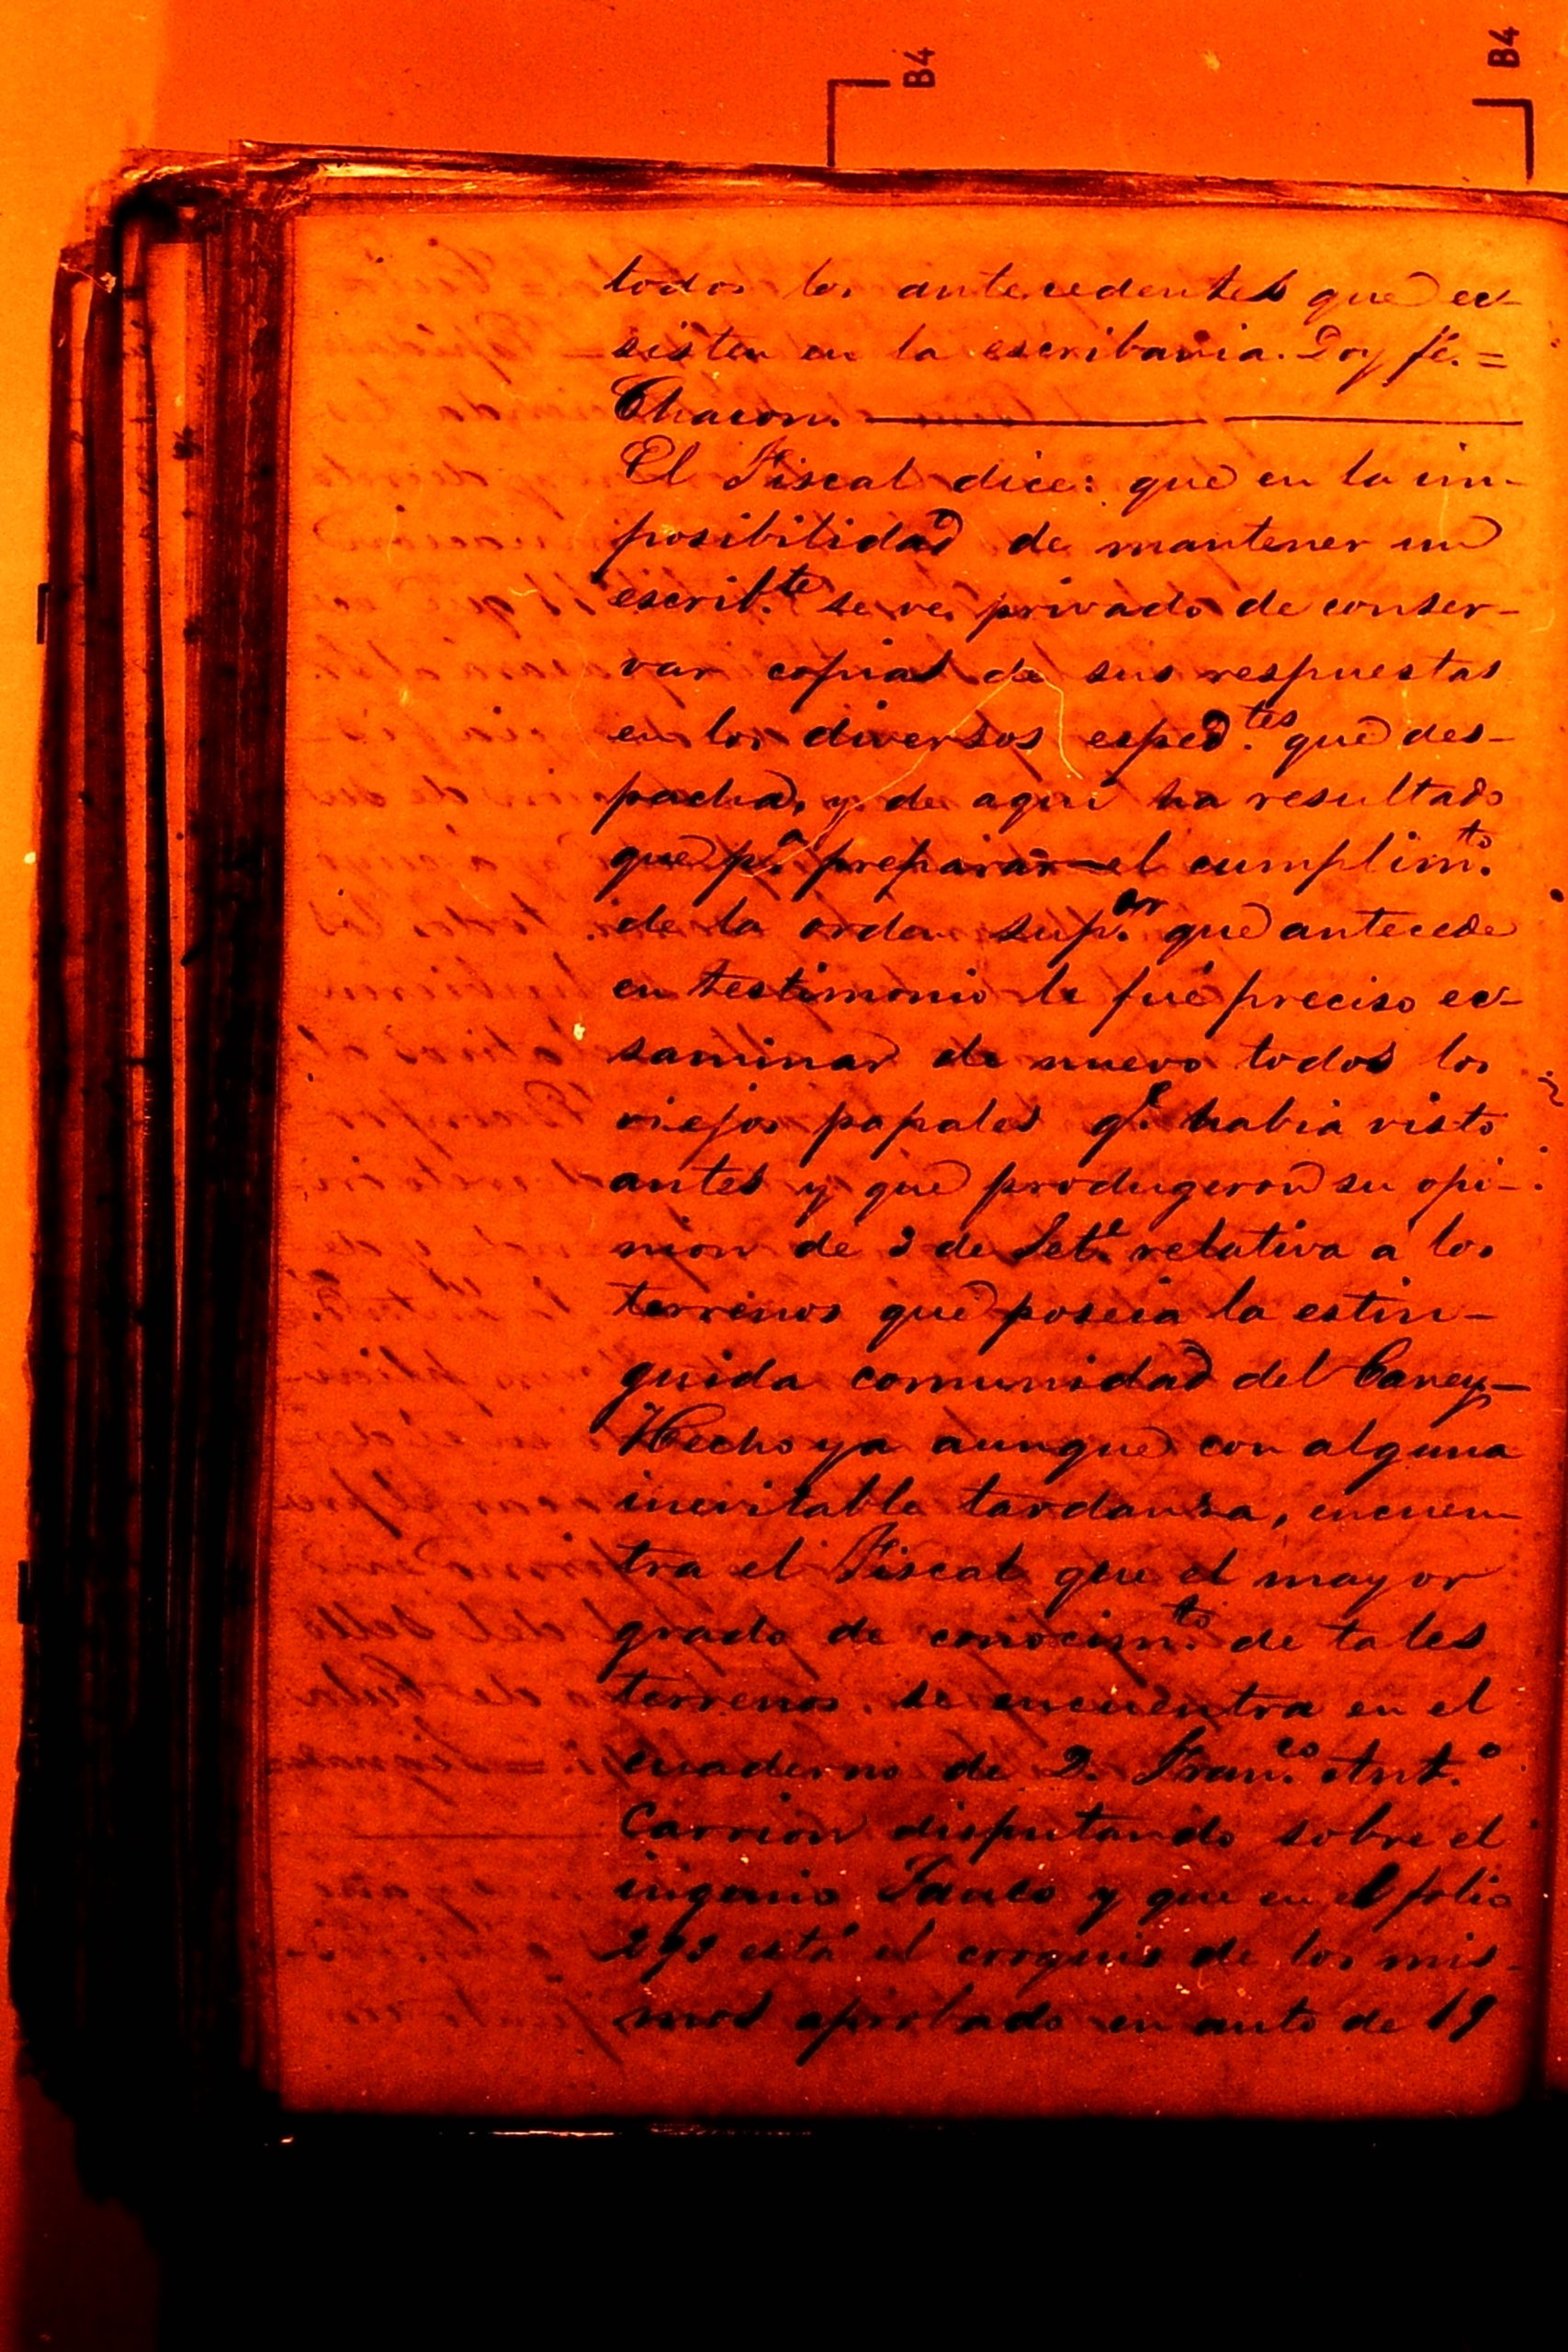 B4
B4
todos los antecedentes que ec-
sisten en la escribania. Doy fé. =
Chacon.
El Fiscal dice: que en la im-
posibilidad de mantener un
escrib.te se ve privado de conser-
var copias de sus respuestas
en los diversos esped.tes que des-
pacha, y de aqui ha resultado
que p.a preparar el cumplim.to
de la orden sup.or que antecede
en testimonio le fué preciso ec-
saminar de nuevo todos los
viejos papales q.e habia visto
antes y que produgeron su opi-
nion de 2 de Set.e relativa á los
terrenos que poseia la estin-
guida comunidad del Caney-
Hecho ya aunque con alguna
inevitable tardanza, encuen-
tra el Fiscal que el mayor
grado de conocim.to de tales
terrenos se encuentra en el
cuaderno de D. Fran.co Ant.o
Carrion disputando sobre el
ingenio y que en el folio
está el croquis de los mis-
mos aprobado en auto de 19